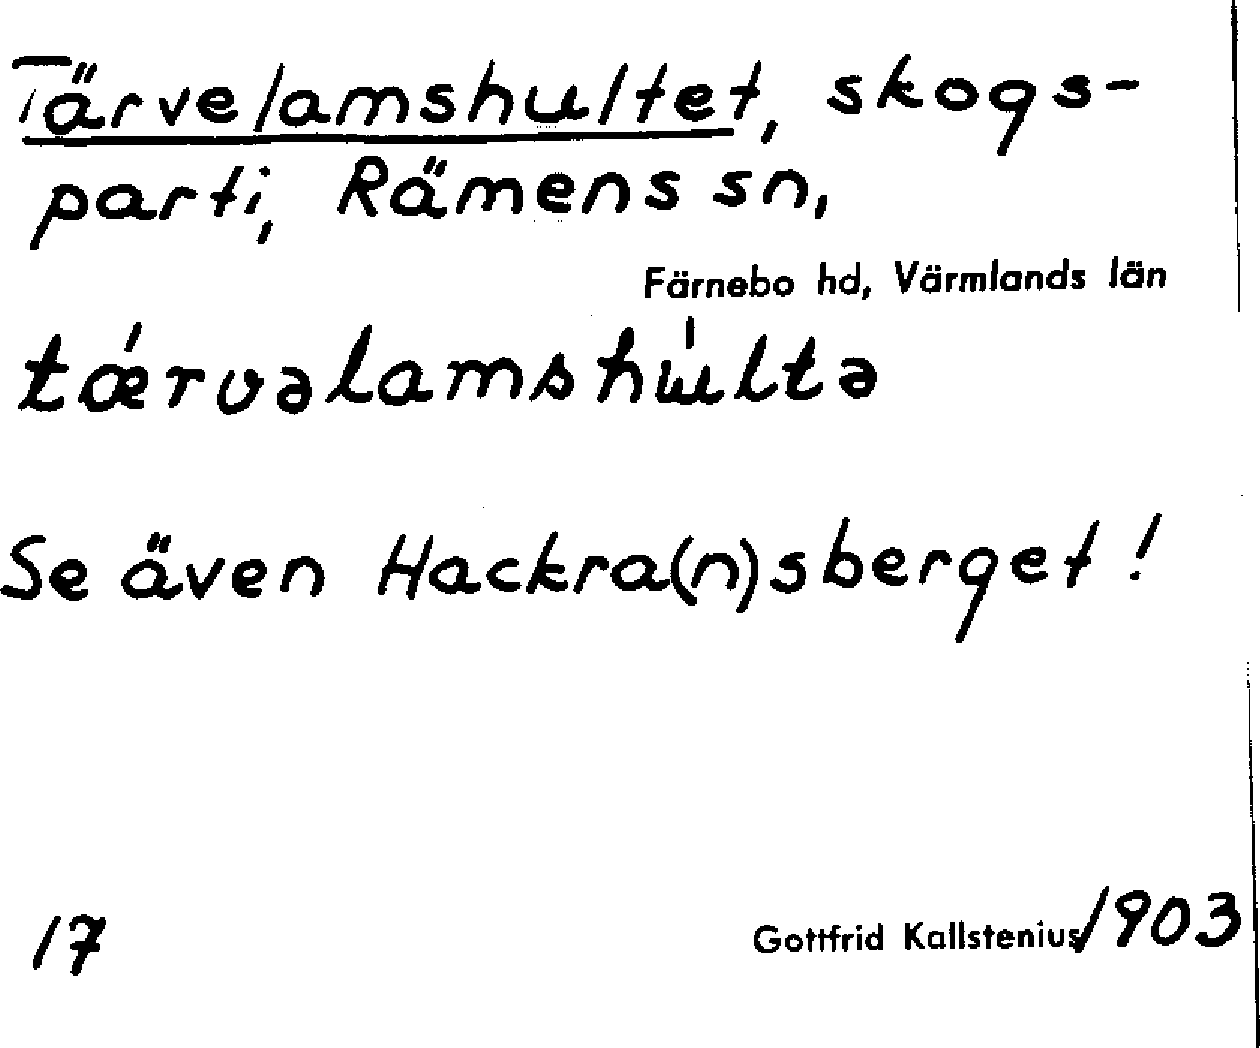 Tärvelamshultet, skogs-
parti, Rämens sn,
Färnebo hd, Värmlands län
tǽrvəlamshu̍ltə
Se även Hackra(n)sberget!
17
Gottfrid Kallstenius 1903